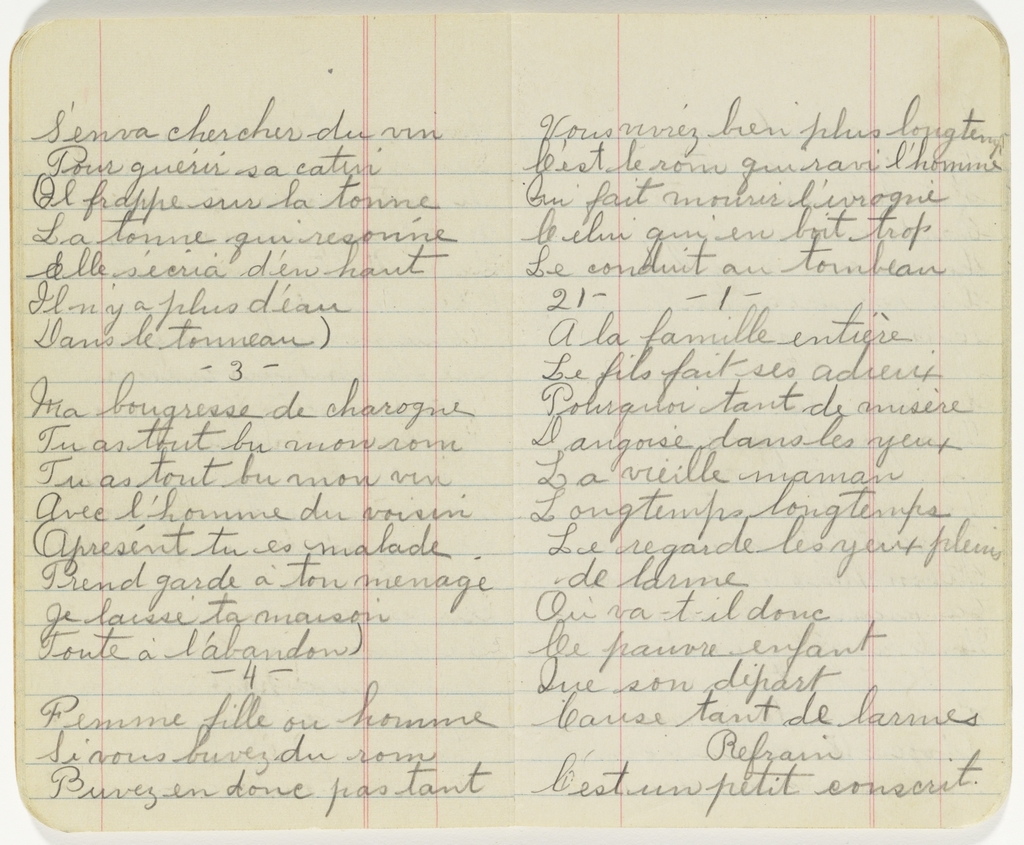 S'en va chercher du vin
Pour guérir sa catin
(Il frappe sur la tonne
La tonne qui résonne
Elle s'écria d'en haut
Il n'y a plus d'eau
Dans le tonneau)
- 3 -
Ma bougresse de charogne
Tu as tout bu mon rom
Tu as tout bu mon vin
Avec l'homme du voisin
(Apresént tu es malade
Prend garde à ton ménage
Je laisse ta maison
Toute à l'abandon)
- 4 -
Femme fille ou homme
Si vous buvez du rom
Buvez en donc pas tant
Vous vivrez bien plus longtemps
C'est le rom qui ravi l'homme
Qui fait mourir l'ivrogne
Celui qui en boit trop
Le conduit au tombeau
21- -1-
A la famille entière
Le fils fait ses adieux
Pourquoi tant de misère
D'angoise dans les yeux
La vieille maman
Longtemps longtemps
Le regarde les yeux pleins
de larme
Où va-t-il donc
Ce pauvre enfant
Que son départ
Cause tant de larmes
Refrain
C'est un petit conscrit.